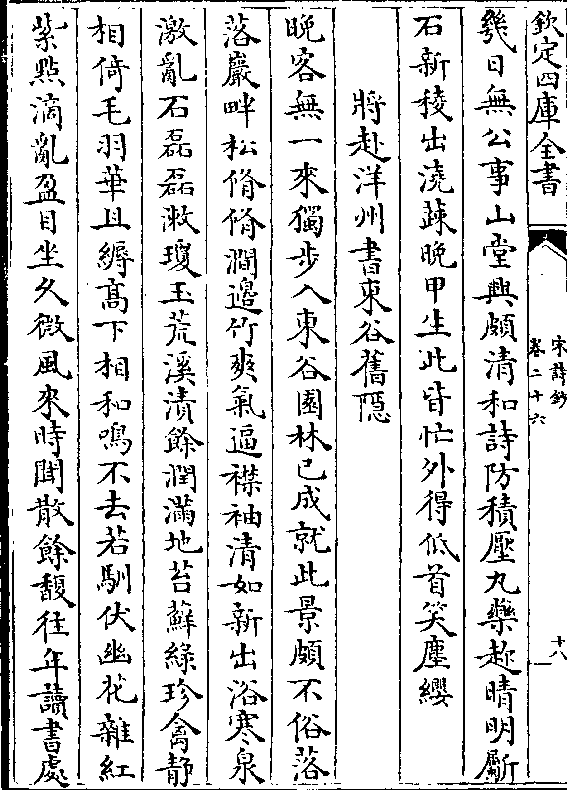 欽定四庫全書
宋詩鈔
卷二十六
十八
幾日無公事山堂興頗清和詩防積壓丸藥趂晴明斸
石新稜出澆蔬晚甲生此皆忙外得低首笑塵纓
將赴洋州書東谷舊隠
晚客無一來獨步入東谷園林已成就此景頗不俗落
落巖畔松脩脩澗邊竹爽氣逼襟袖清如新出浴寒泉
激亂石磊磊漱瓊玉荒溪漬餘潤滿地苔蘚綠珍禽静
相倚毛羽華且縟髙下相和鳴不去若馴伏幽花雜紅
紫點滴亂盈目坐久微風來時聞散餘馥往年讀書處